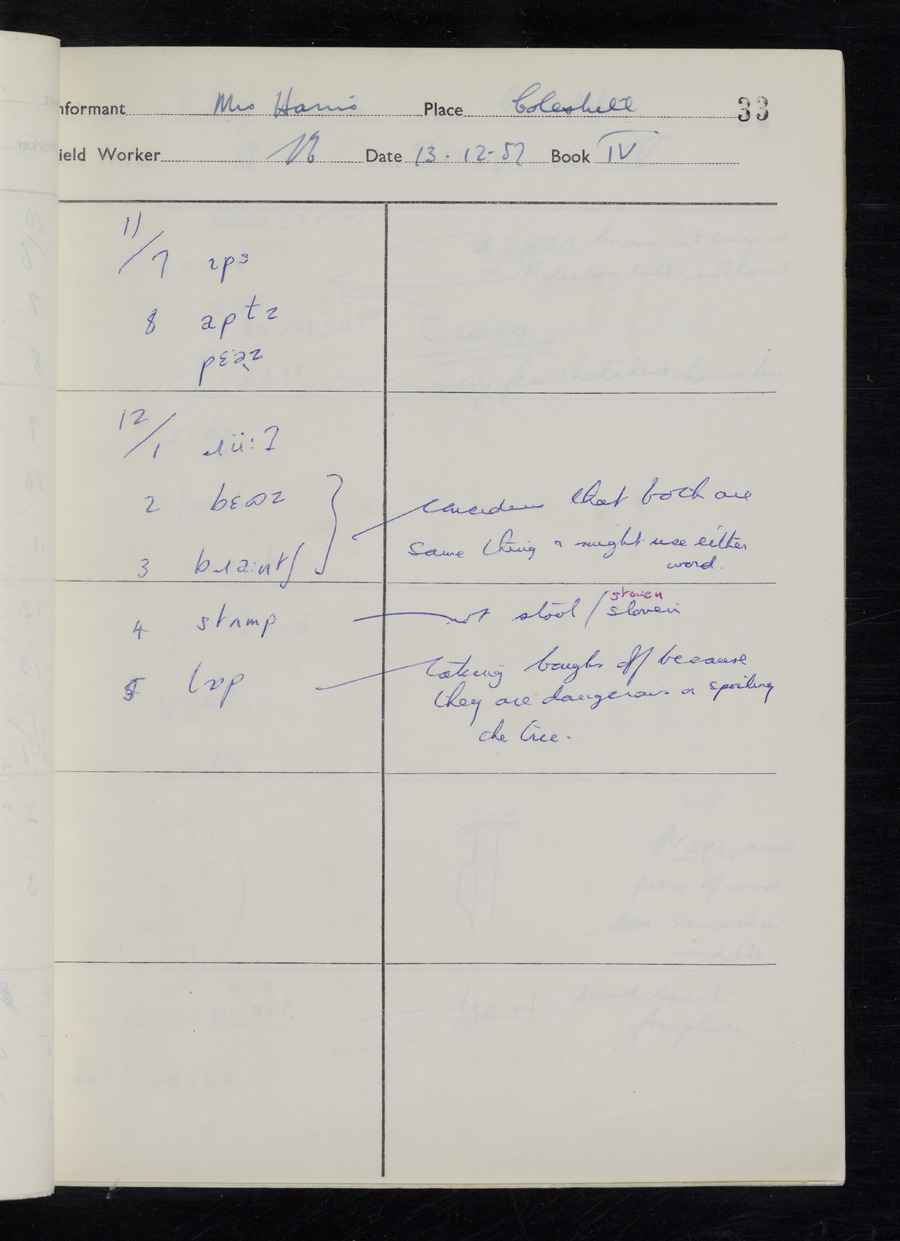 nformant Mrs Harris Place Coleshill 33
ield Worker Date 13.12-57 Book IV
11/7 ɪps
8 aptz
pɛəz
12/1
2 bɛʊz
3 bɹaːntʃ
considers that both are
same thing & might use either
word.
4 stʌmp
not stool / sloven
stoven
5 lɒp
taking boughs off because
they are dangerous or spoiling
the tree.